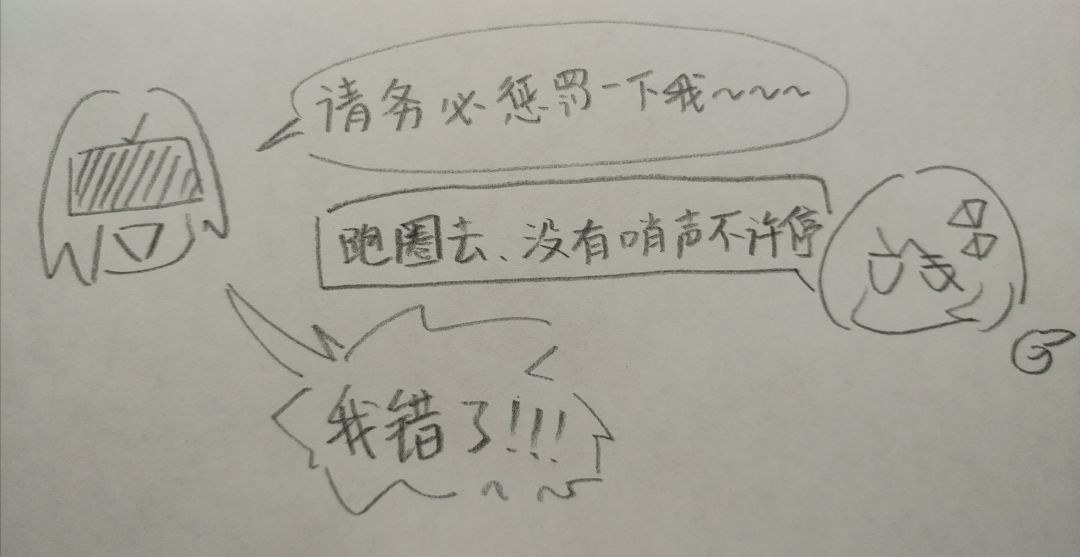 请务必惩罚一下我～～～
跑圈去、没有哨声不许停
我错了!!!